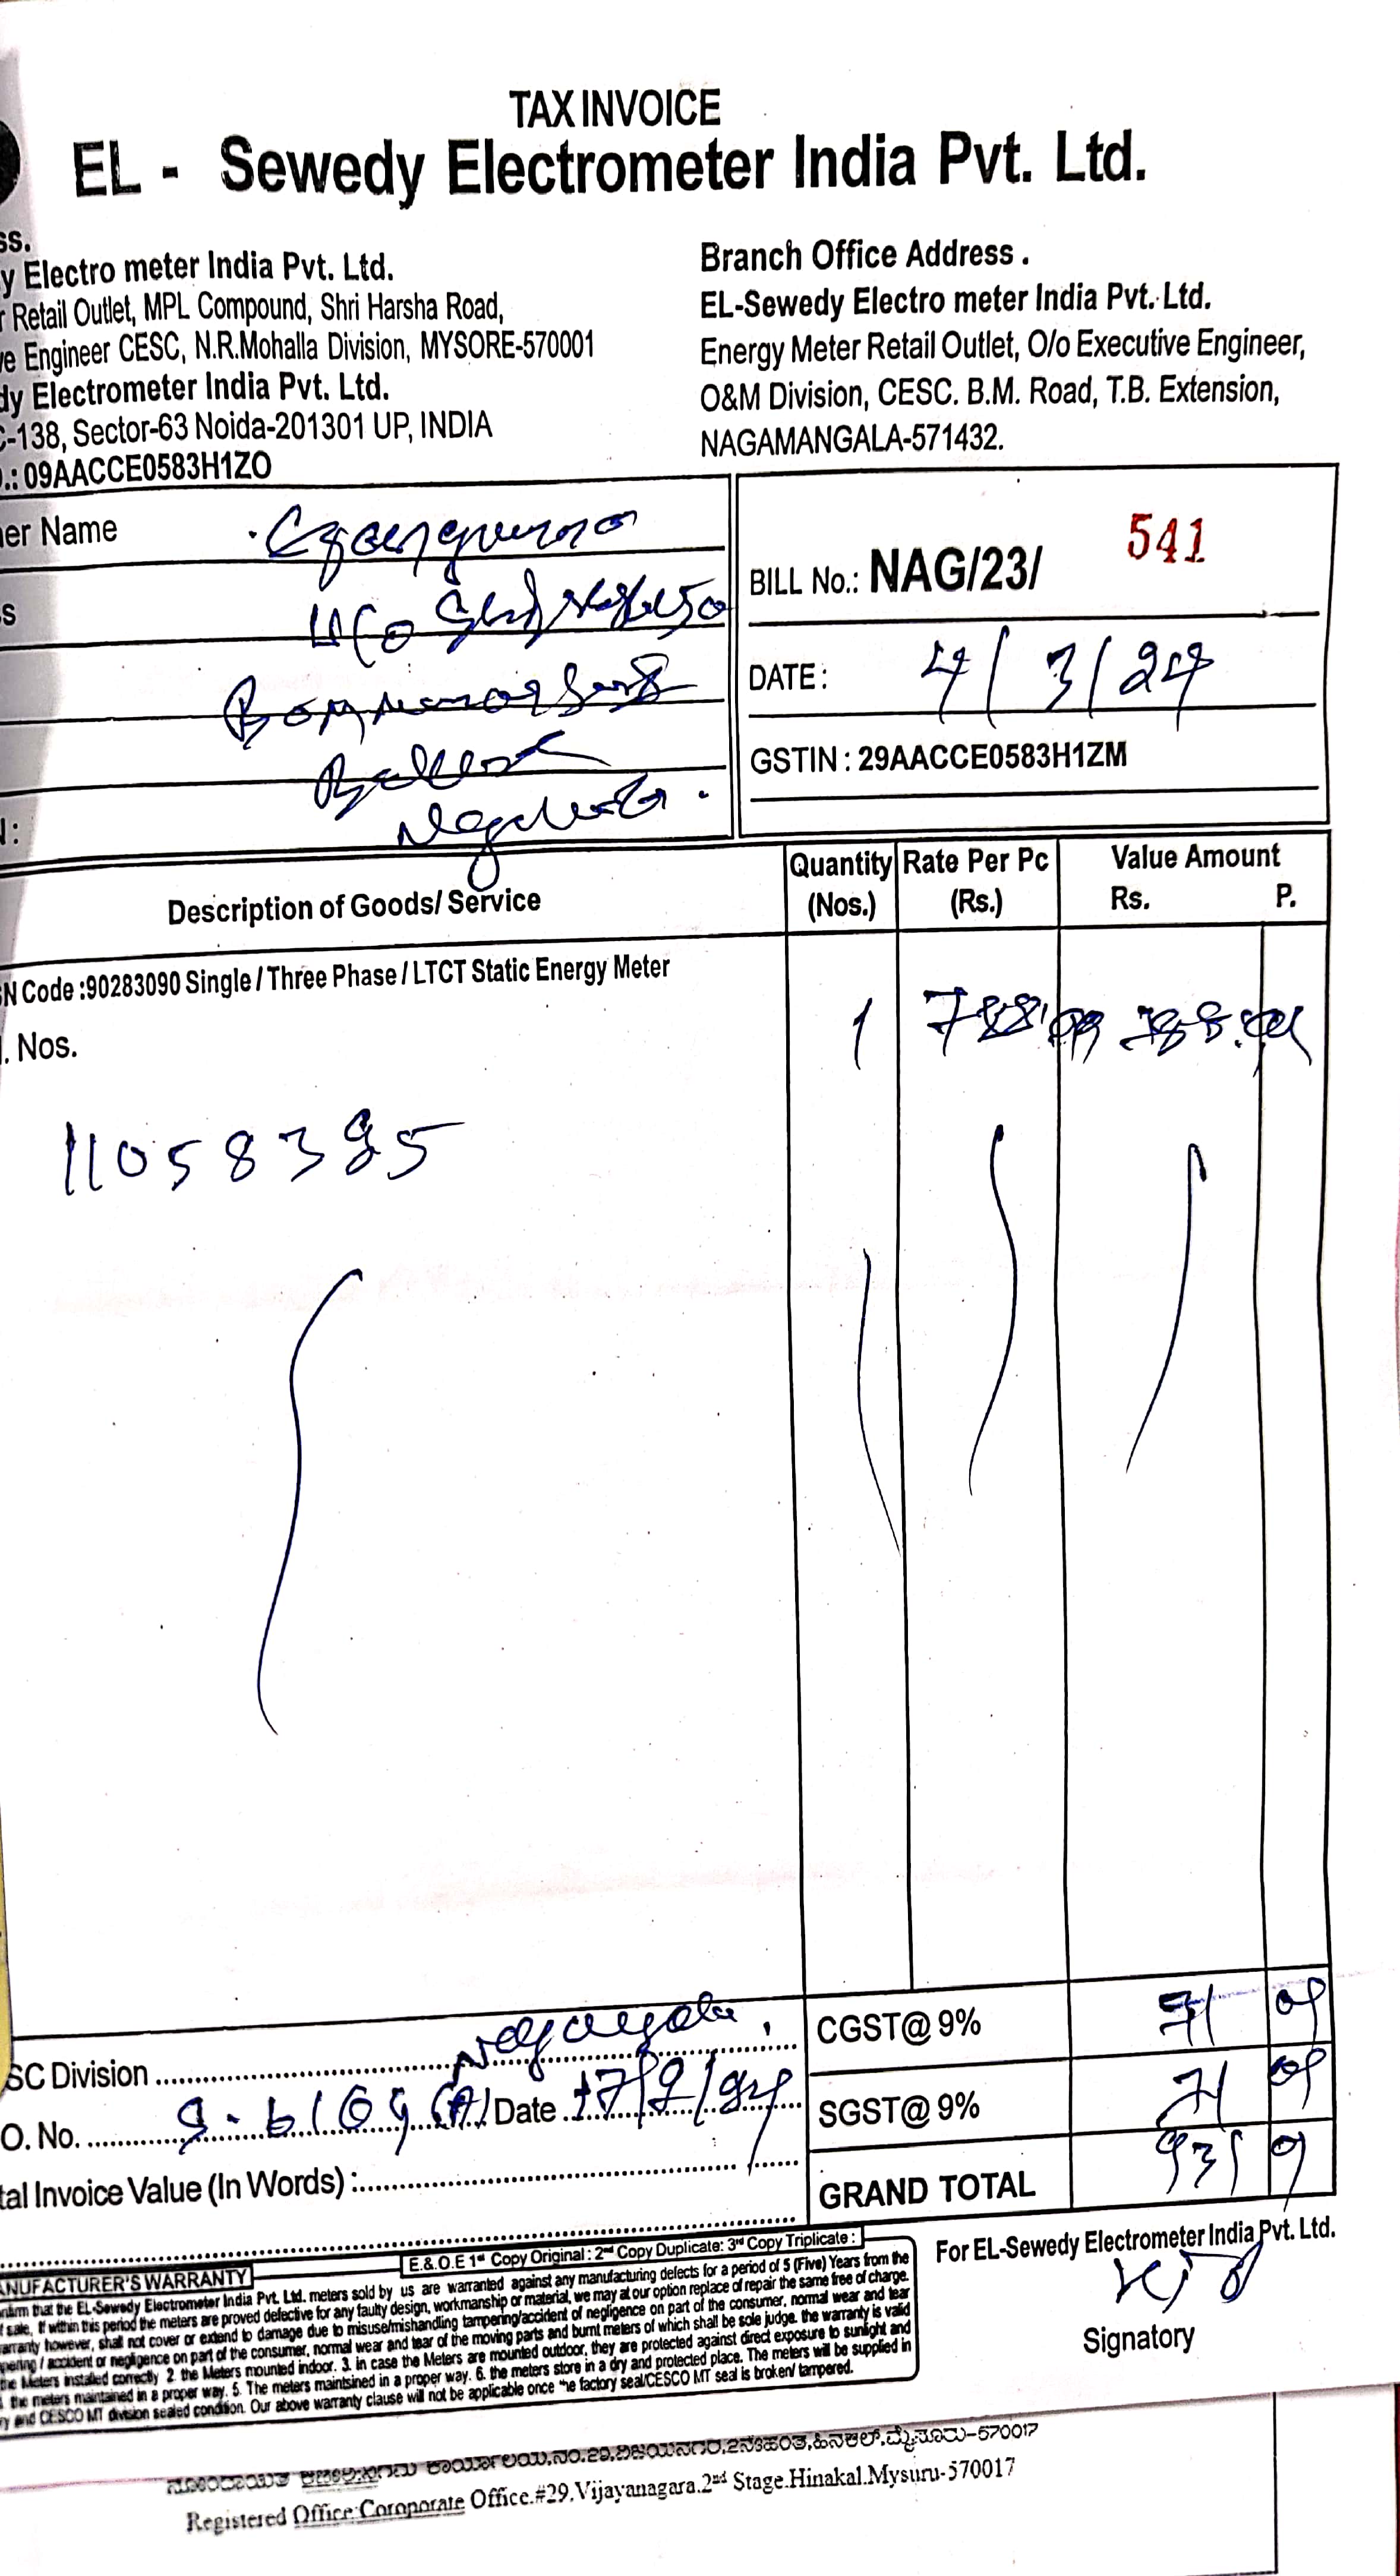 TAX INVOICE
EL - Sewedy Electrometer India Pvt. Ltd.
ss.
y Electro meter India Pvt. Ltd.
r Retail Outlet, MPL Compound, Shri Harsha Road,
ve Engineer CESC, N.R.Mohalla Division, MYSORE-570001
dy Electrometer India Pvt. Ltd.
C-138, Sector-63 Noida-201301 UP, INDIA
O.: 09AACCE0583H1ZO
Branch Office Address .
EL-Sewedy Electro meter India Pvt. Ltd.
Energy Meter Retail Outlet, O/o Executive Engineer,
O&M Division, CESC. B.M. Road, T.B. Extension,
NAGAMANGALA-571432.
er Name
s
N:
BILL No.: NAG/23/ 541
DATE : 4/3/24
GSTIN : 29AACCE0583H1ZM
Description of Goods/ Service
Quantity (Nos.)
Rate Per Pc (Rs.)
Value Amount
Rs. P.
SN Code :90283090 Single / Three Phase / LTCT Static Energy Meter
l. Nos.
1 788.99 788.99
11058385
SC Division
O. No. Date 17/2/24
tal Invoice Value (In Words) :
CGST@ 9% 71 01
SGST@ 9% 71 01
GRAND TOTAL 931 0
E.& O.E 1st Copy Original : 2nd Copy Duplicate: 3rd Copy Triplicate :
For EL-Sewedy Electrometer India Pvt. Ltd.
Signatory
ANUFACTURER'S WARRANTY
nfirm that the EL-Sewedy Electrometer India Pvt. Ltd. meters sold by us are warranted against any manufacturing defects for a period of 5 (Five) Years from the
f sale, If within this period the meters are proved defective for any faulty design, workmanship or material, we may at our option replace of repair the same free of charge.
arranty however, shall not cover or extend to damage due to misuse/mishandling tampering/accident of negligence on part of the consumer, normal wear and tear
pering / accident or negligence on part of the consumer, normal wear and tear of the moving parts and burnt meters of which shall be sole judge. the warranty is valid
the Meters installed correctly 2. the Meters mounted indoor. 3. in case the Meters are mounted outdoor, they are protected against direct exposure to sunlight and
the meters maintained in a proper way. 5. The meters maintsined in a proper way. 6. the meters store in a dry and protected place. The meters will be supplied in
ry and CESCO MT division sealed condition. Our above warranty clause will not be applicable once the factory seal/CESCO MT seal is broken/ tampered.
Registered Office:Coroporate Office.#29.Vijayanagara.2nd Stage.Hinakal.Mysuru-570017